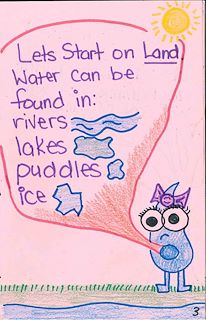 Lets Start on Land.
Water can be
found in:
rivers
lakes
puddles
ice
3